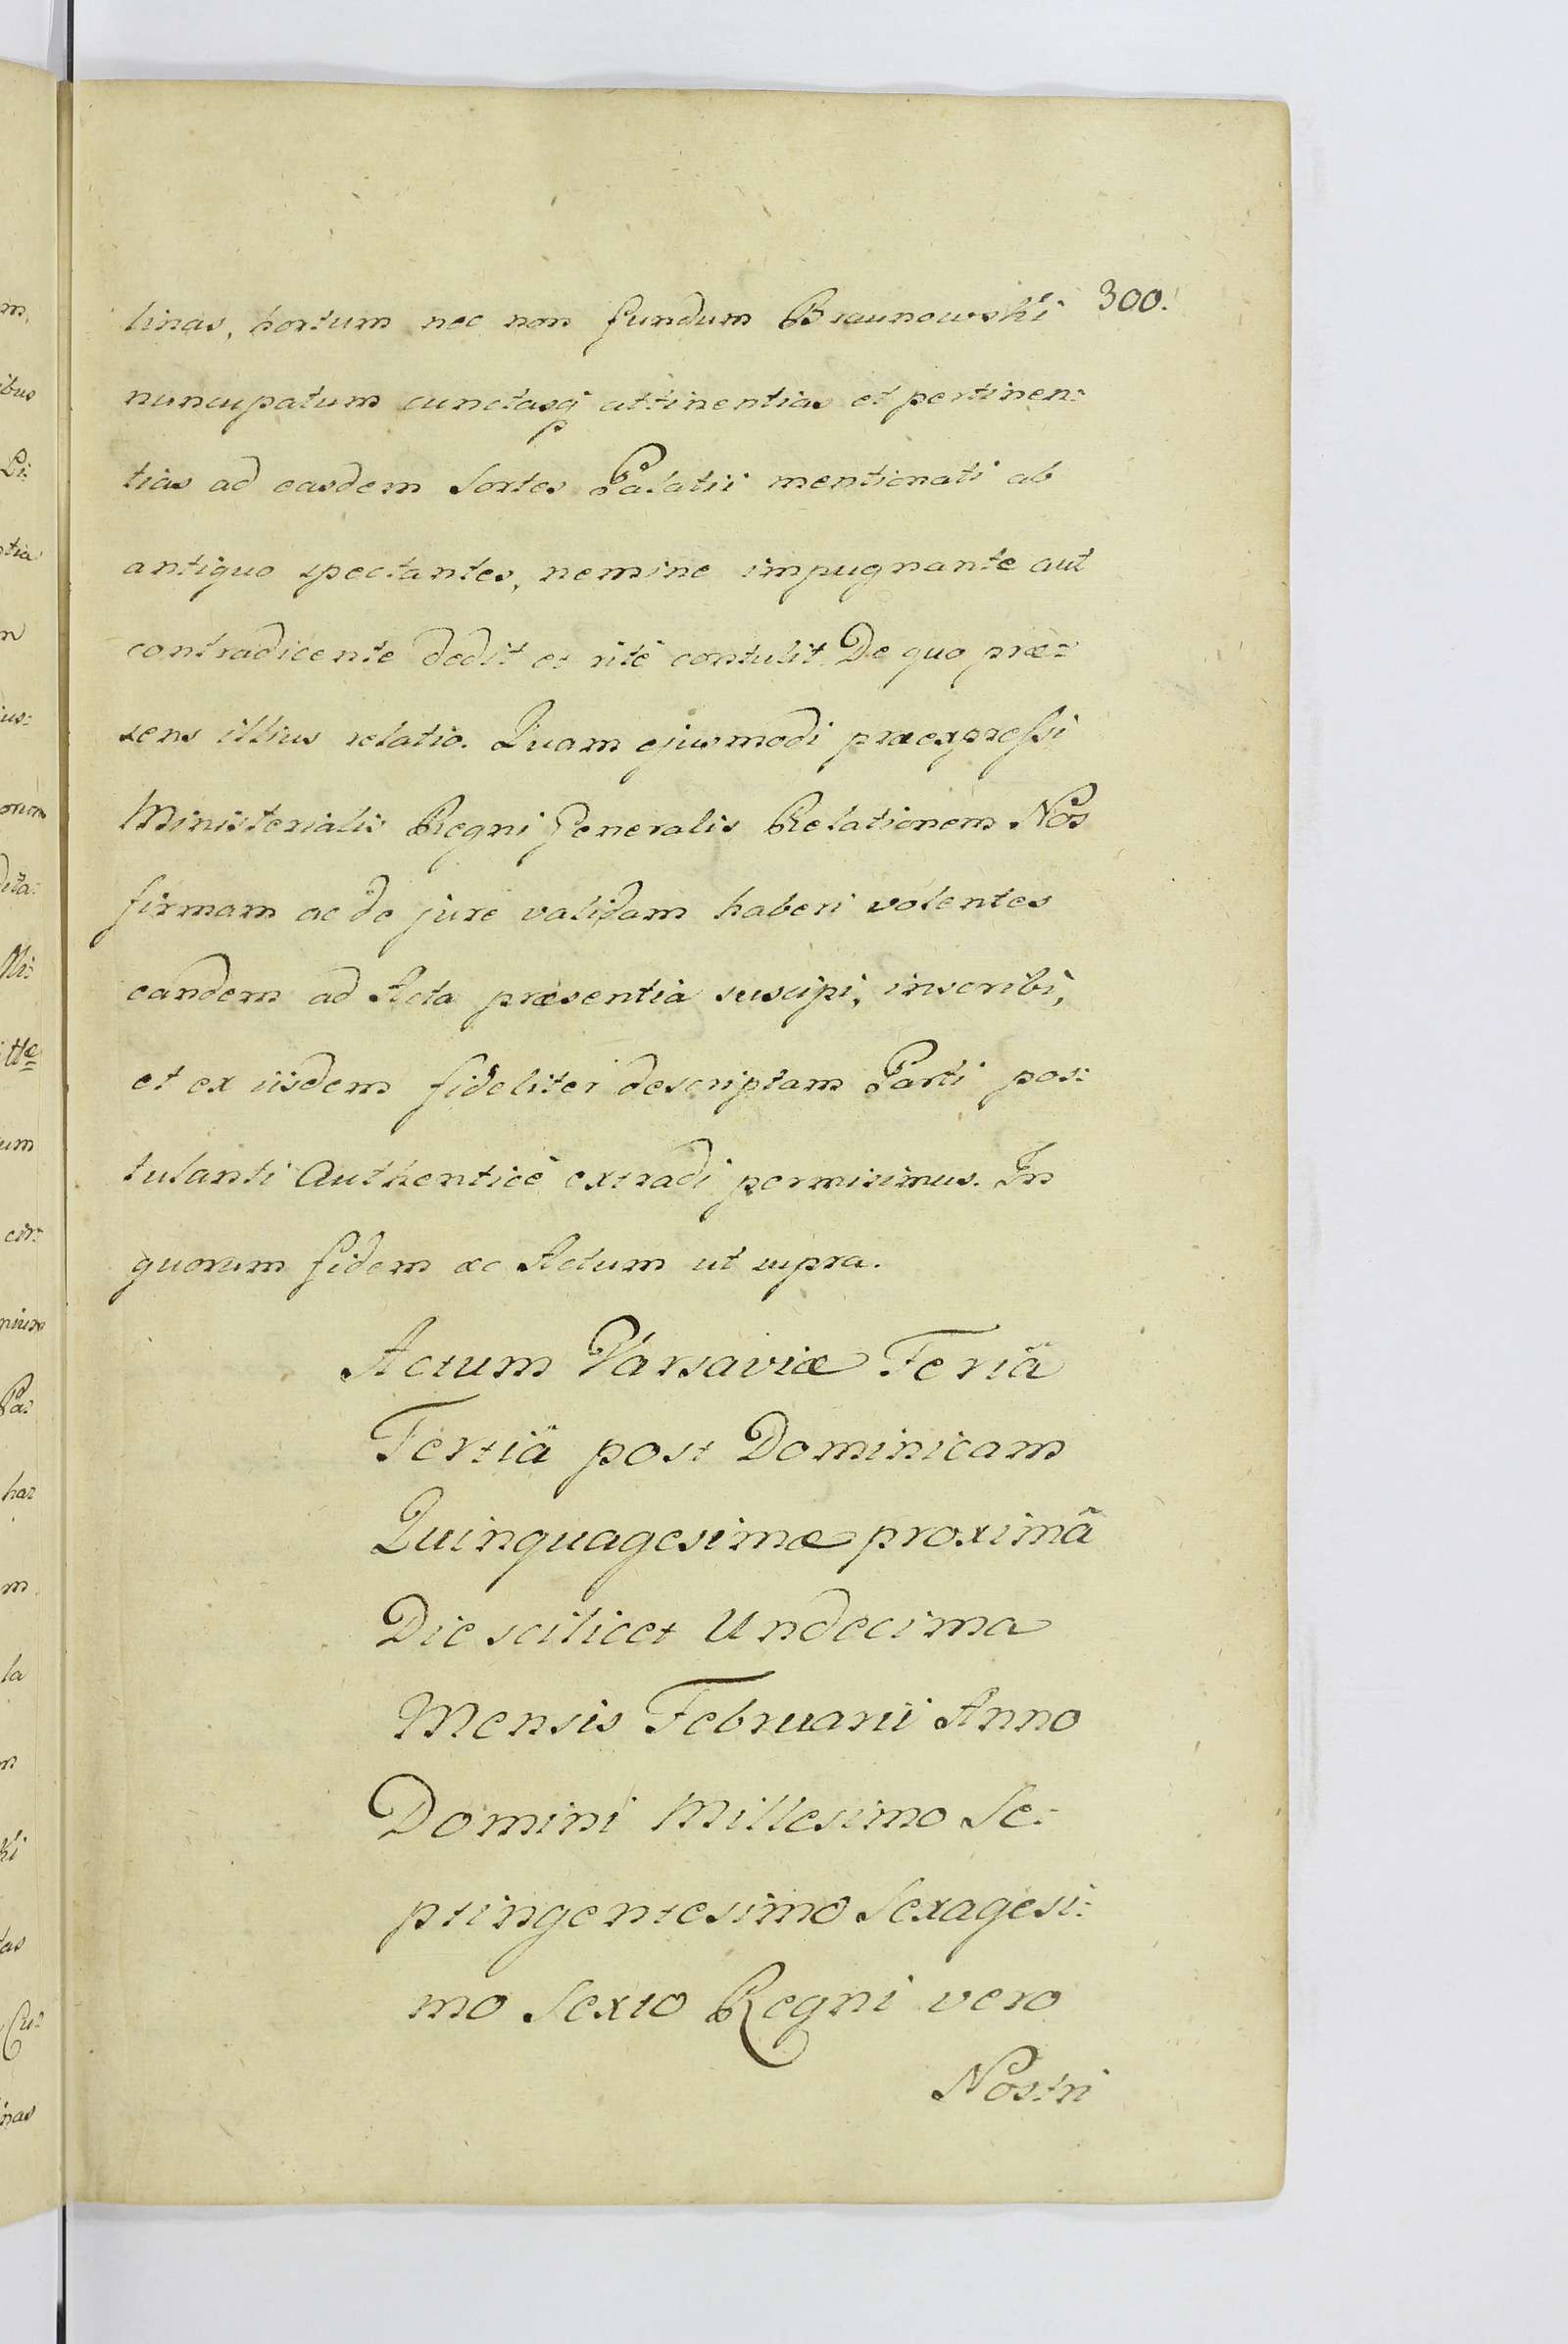 300.
linas, hortum nec non fundum Braunowski
nuncupatum cunctasq attinentias et pertinen:
tias ad easdem Sortes Palatii mentionati ab
antiquo spectantes, nemine impugnante aut
contradicente dedit et ritè contulit. De quo præ:
sens illius relatio. Quam ejusmodi præexpressi
Ministerialis Regni Generalis Relationem Nos
firmam ac de jure validam haberi volentes
eandem ad Acta præsentia suscipi, inscribi,
et ex iisdem fideliter descriptam Parti pos:
tulanti Authenticè extradi permisimus. In
quorum fidem ac Actum ut supra.
Actum Varsaviæ Feriâ
Tertiâ post Dominicam
Quinquagesimæ proximâ
Die scilicet Undecima
Mensis Februarii Anno
Domini Millesimo Se:
ptingentesimo Sexagesi:
mo Sexto Regni vero
Nostri